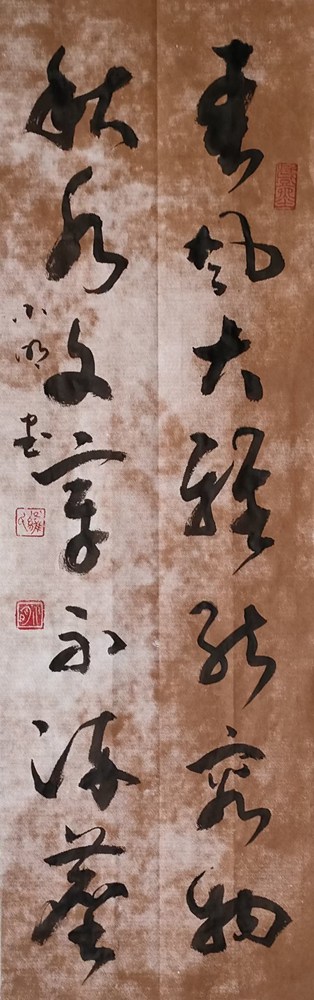 春风大雅能容物
秋水文章不染尘
小明书